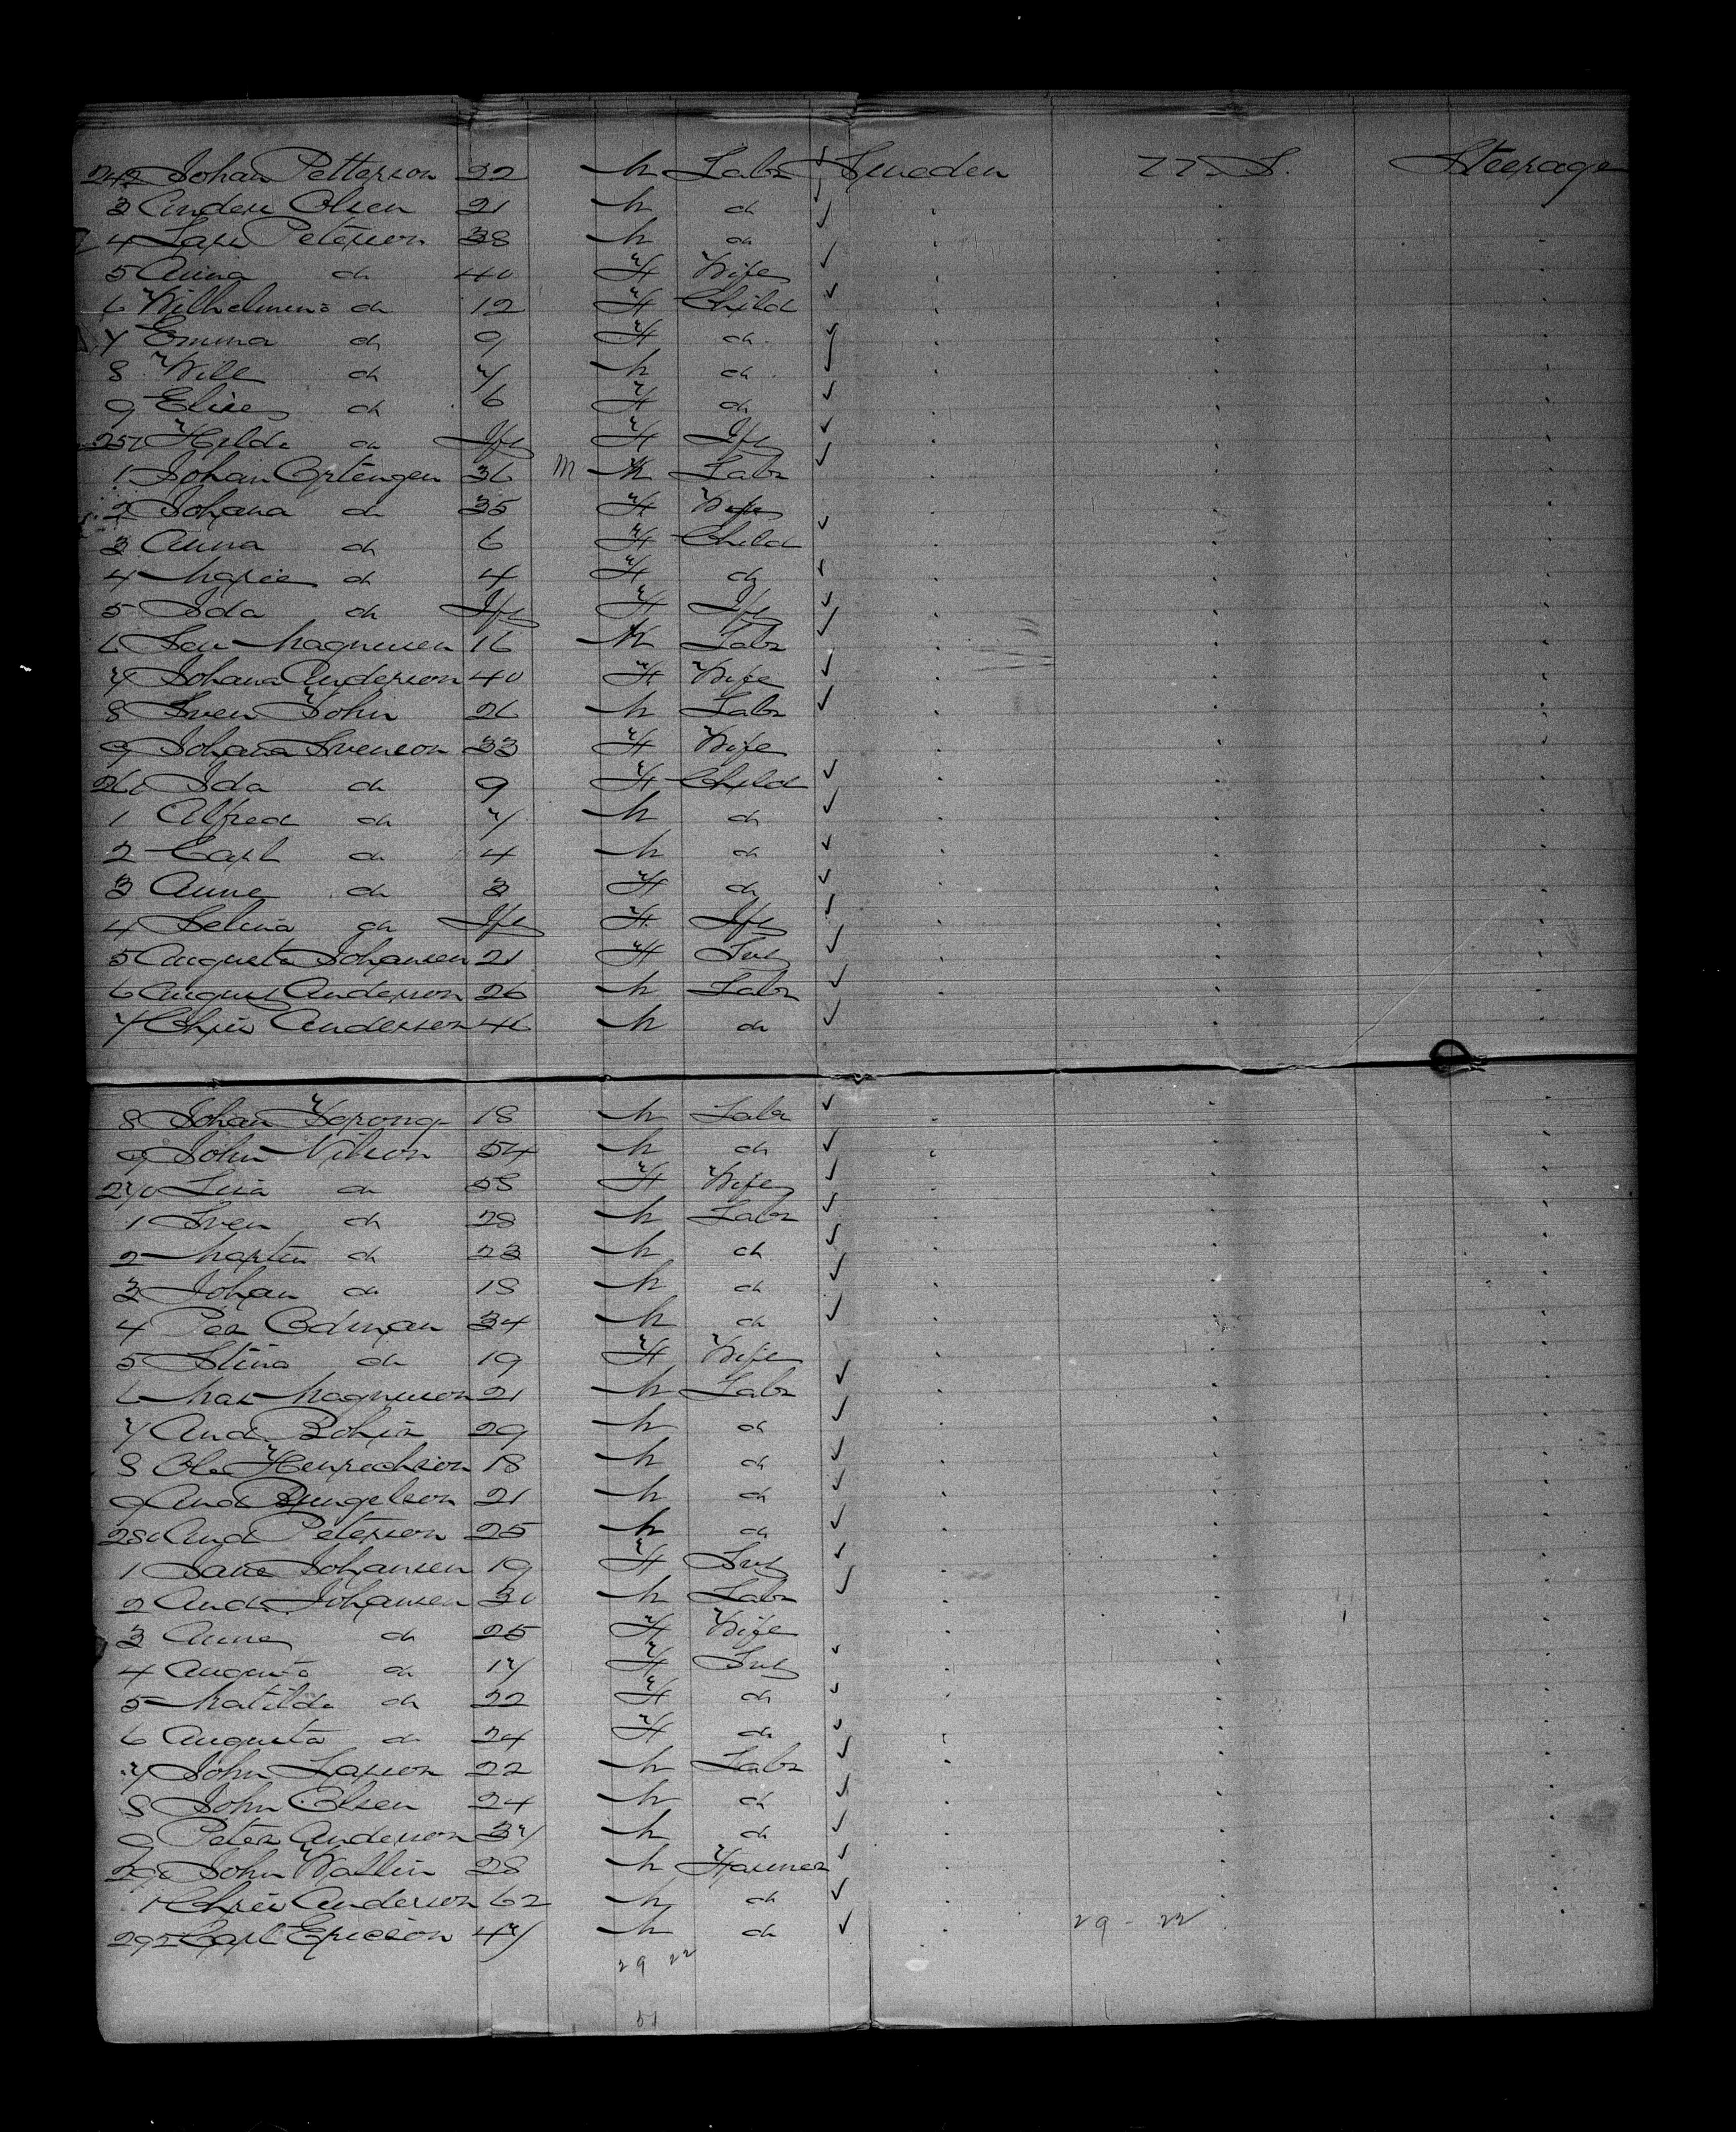 242 Johan Petterson 22 M Labr Sweden U. S. Steerage
3 Anders Olsen 21 M do
4 Lars Peterson 38 M do
5 Anna do 40 F Wife
6 Wilhelmina do 12 F Child
7 Emma do 9 F do
8 Will do 7 M do
9 Elise do 6 F do
250 Hilda do Inf F Inf
1 Johan 36 M M Labr
2 Johana do 35 F Wife
3 Anna do 6 F Child
4 Marie do 4 F do
5 Ida do Inf F Inf
6 Magnusen 16 M Labr
7 Johana Anderson 40 F Wife
8 Sven John 26 M Labr
9 Johana Svenson 33 F Wife
260 Ida do 9 F Child
1 Alfred do 7 M do
2 Carl do 4 M do
3 Anne do 3 F do
4 Selina do Inf F Inf
5 Augusta Johansen 21 F Svt
6 August Anderson 26 M Labr
7 Chris Anderson 46 M do
8 Johan 18 M Labr
9 John Nilson 54 M do
270 Lisa do 58 F Wife
1 Sven do 28 M Labr
2 Martin do 23 M do
3 Johan do 18 M do
4 Per Edman 34 M do
5 Stina do 19 F Wife
6 Magnuson 21 M Labr
7 And 29 M do
8 Ole Henrechson 18 M do
9 And 21 M do
280 And Peterson 25 M do
1 Johansen 19 F Svt
2 And. Johansen 30 M Labr
3 Anne do 25 F Wife
4 Augusta do 17 F Svt
5 Matilda do 22 F do
6 Augusta do 24 F do
7 John Larson 22 M Labr
8 John Olsen 24 M do
9 Peter Anderson 37 M do
290 John Wallin 28 M Farmer
1 Chris Anderson 62 M do
292 Carl Ericson 47 M do 29 - 22
29 22
51